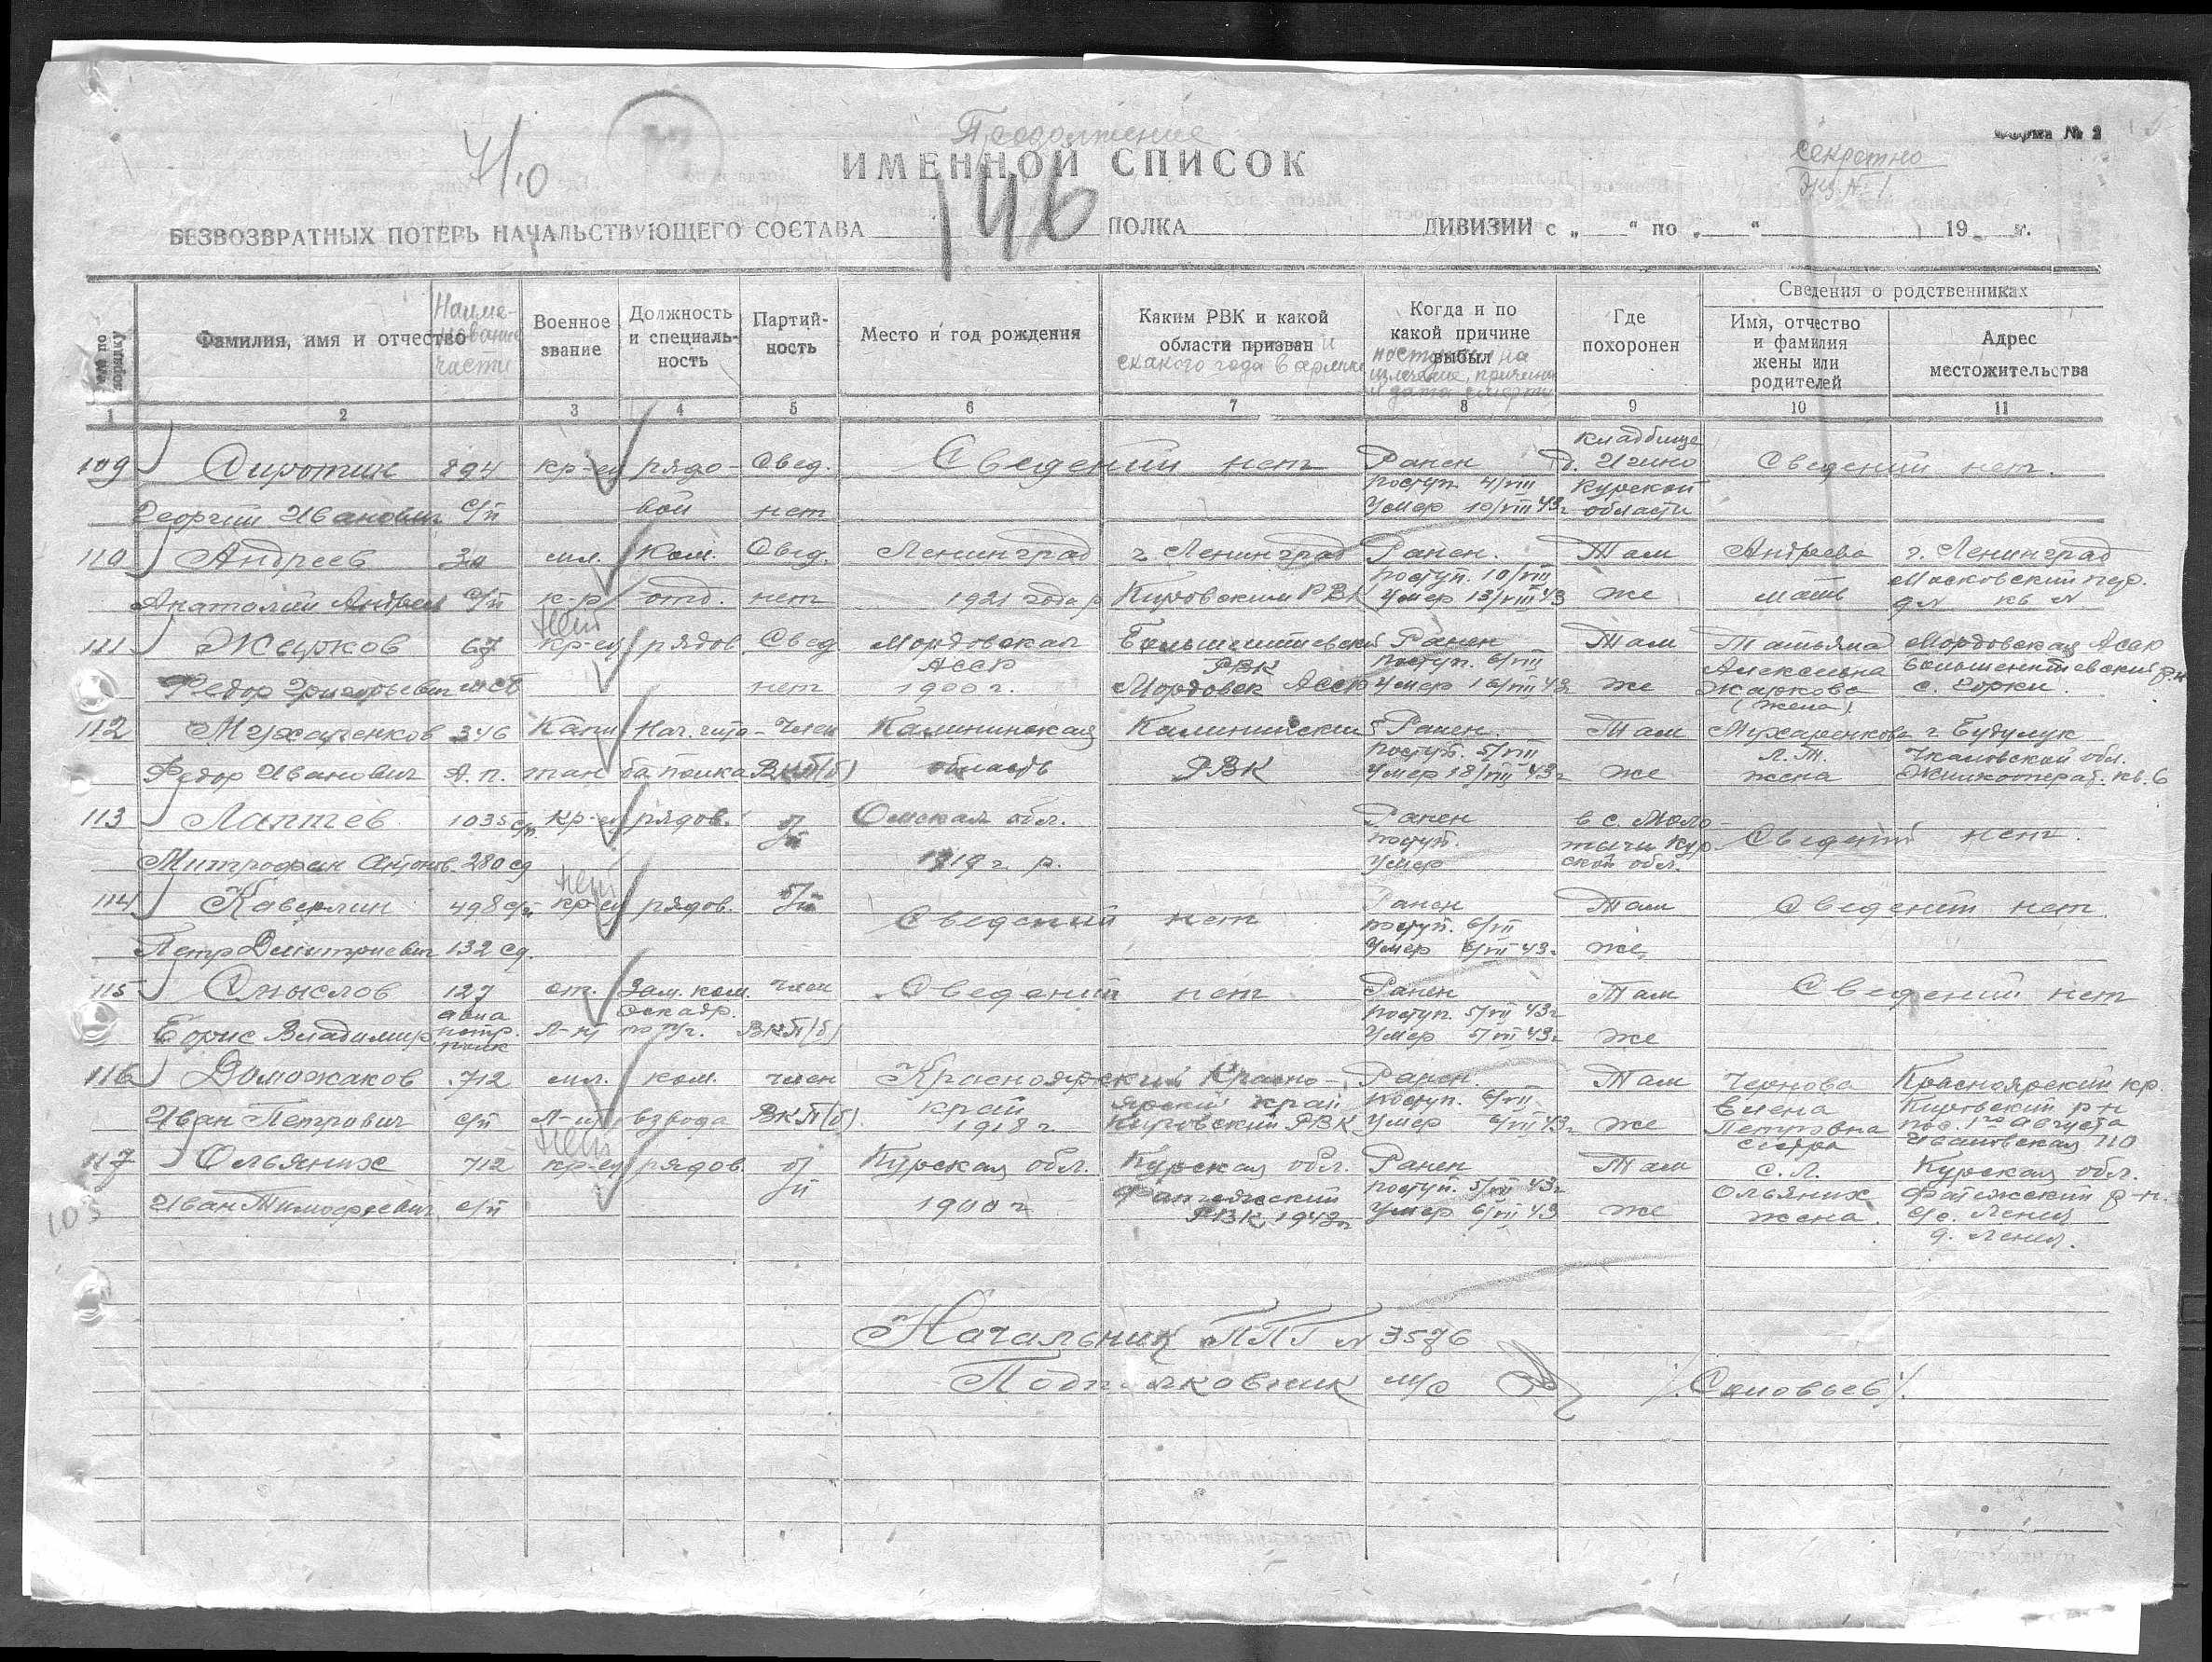 Продолжение
Форма № 2
ИМЕННОЙ СПИСОК
секретно
Экз. № 1
146
БЕЗВОЗВРАТНЫХ ПОТЕРЬ НАЧАЛЬСТВУЮЩЕГО СОСТАВА ПОЛКА ДИВИЗИИ с „ “ по „ “ 19 г.
№№ по порядку
Фамилия, имя и отчество
Наименование части
Военное звание
Должность и специальность
Партийность
Место и год рождения
Каким РВК и какой области призван и с какого года в армии
Когда и по какой причине выбыл
поступил на излечение, причина и дата смерти
Где похоронен
Сведения о родственниках
Имя, отчество и фамилия жены или родителей
Адрес местожительства
1 2 3 4 5 6 7 8 9 10 11
109 Сиротин 894 кр-ец рядо- Свед. Сведений нет Ранен кладбище д. Игино Сведений нет.
Георгий Иванович с/п вой нет поступ. 4/VIII Умер 10/VIII 43г Курской области
110 Андреев мл. Ком. Свед. Ленинград г. Ленинград Ранен. Там Андреева г. Ленинград
Анатолий Андреев с/п к-р отд. нет 1921 года р Кировским РВК поступ. 10/VIII Умер 13/VIII 43 же мать Московский пер. д № кв №
нет
111 Жарков 67 кр-ец рядов. Свед Мордовская АССР Ранен Там Татьяна Мордовская АССР
Федор Григорьевич нет 1900 г. РВК Мордовск АССР поступ. 6/VIII Умер 16/VIII 43г же Алексеевна Жаркова (жена) р-н с. Горки.
112 Мухаренков 346 Капи Нач. шта- Член Калининская Калининский Ранен. Там Мухаренкова г. Бузулук
Федор Иванович А.п. тан ба полка ВКП(б) область РВК поступ. 5/VIII Умер 18/VIII 43г же Л.Т. жена Чкаловской обл. кв. 6
113 Лаптев 1035 сп кр-ец рядов. б/п Омская обл. Ранен в с. Моло- Сведений нет.
Митрофан Антонов. 280 сд 1919 г. р. поступ. Умер тычи Курской обл.
нет
114 Каверлин 498 сп кр-ец рядов. б/п Сведений нет Ранен Там Сведений нет
Петр Дмитриевич 132 сд. поступ. 6/VII Умер 6/VII 43г же
115 Смыслов 127 ст. Зам. ком. член Сведений нет Ранен Там Сведений нет
Борис Владимир. авиа истр. полк Л-нт эскадр. по п/ч. ВКП(б) поступ. 5/VII 43г Умер 5/VII 43г же
116 Доможаков 712 мл. ком. член Красноярский Красно- Ранен. Там Чернова Красноярский кр.
Иван Петрович с/п Л-нт взвода ВКП(б) край 1918 г ярский край Кировский РВК поступ. 6/VII Умер 6/VII 43г же Елена Петровна сестра Кировский р-н пос. 1го августа Ивановская 110
нет
117 Ольяник 712 кр-ец рядов. б/п Курская обл. Курская обл. Ранен Там С.Л. Курская обл.
Иван Тимофеевич с/п 1900 г Фатежский РВК 1943г поступ. 5/VII 43г Умер 6/VII 43 же Ольяник жена. Фатежский р-н.
105
Начальник ППГ № 3576
Подполковник м/с /Соловьев/.